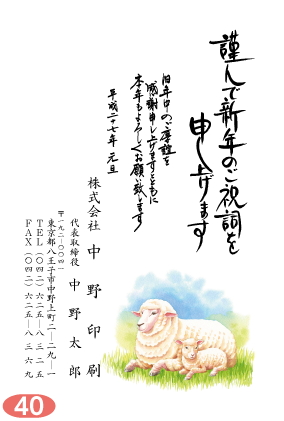 謹んで新年のご祝詞を
申し上げます
旧年中のご厚誼を
感謝申し上げますとともに
本年もよろしくお願い致します
平成二十七年 元旦
株式会社 中野印刷
代表取締役 中野太郎
〒一九二―〇〇四一
東京都八王子市中野上町二―二九―一
TEL(〇四二)六二五―八三二五
FAX(〇四二)六二五―八三六九
40